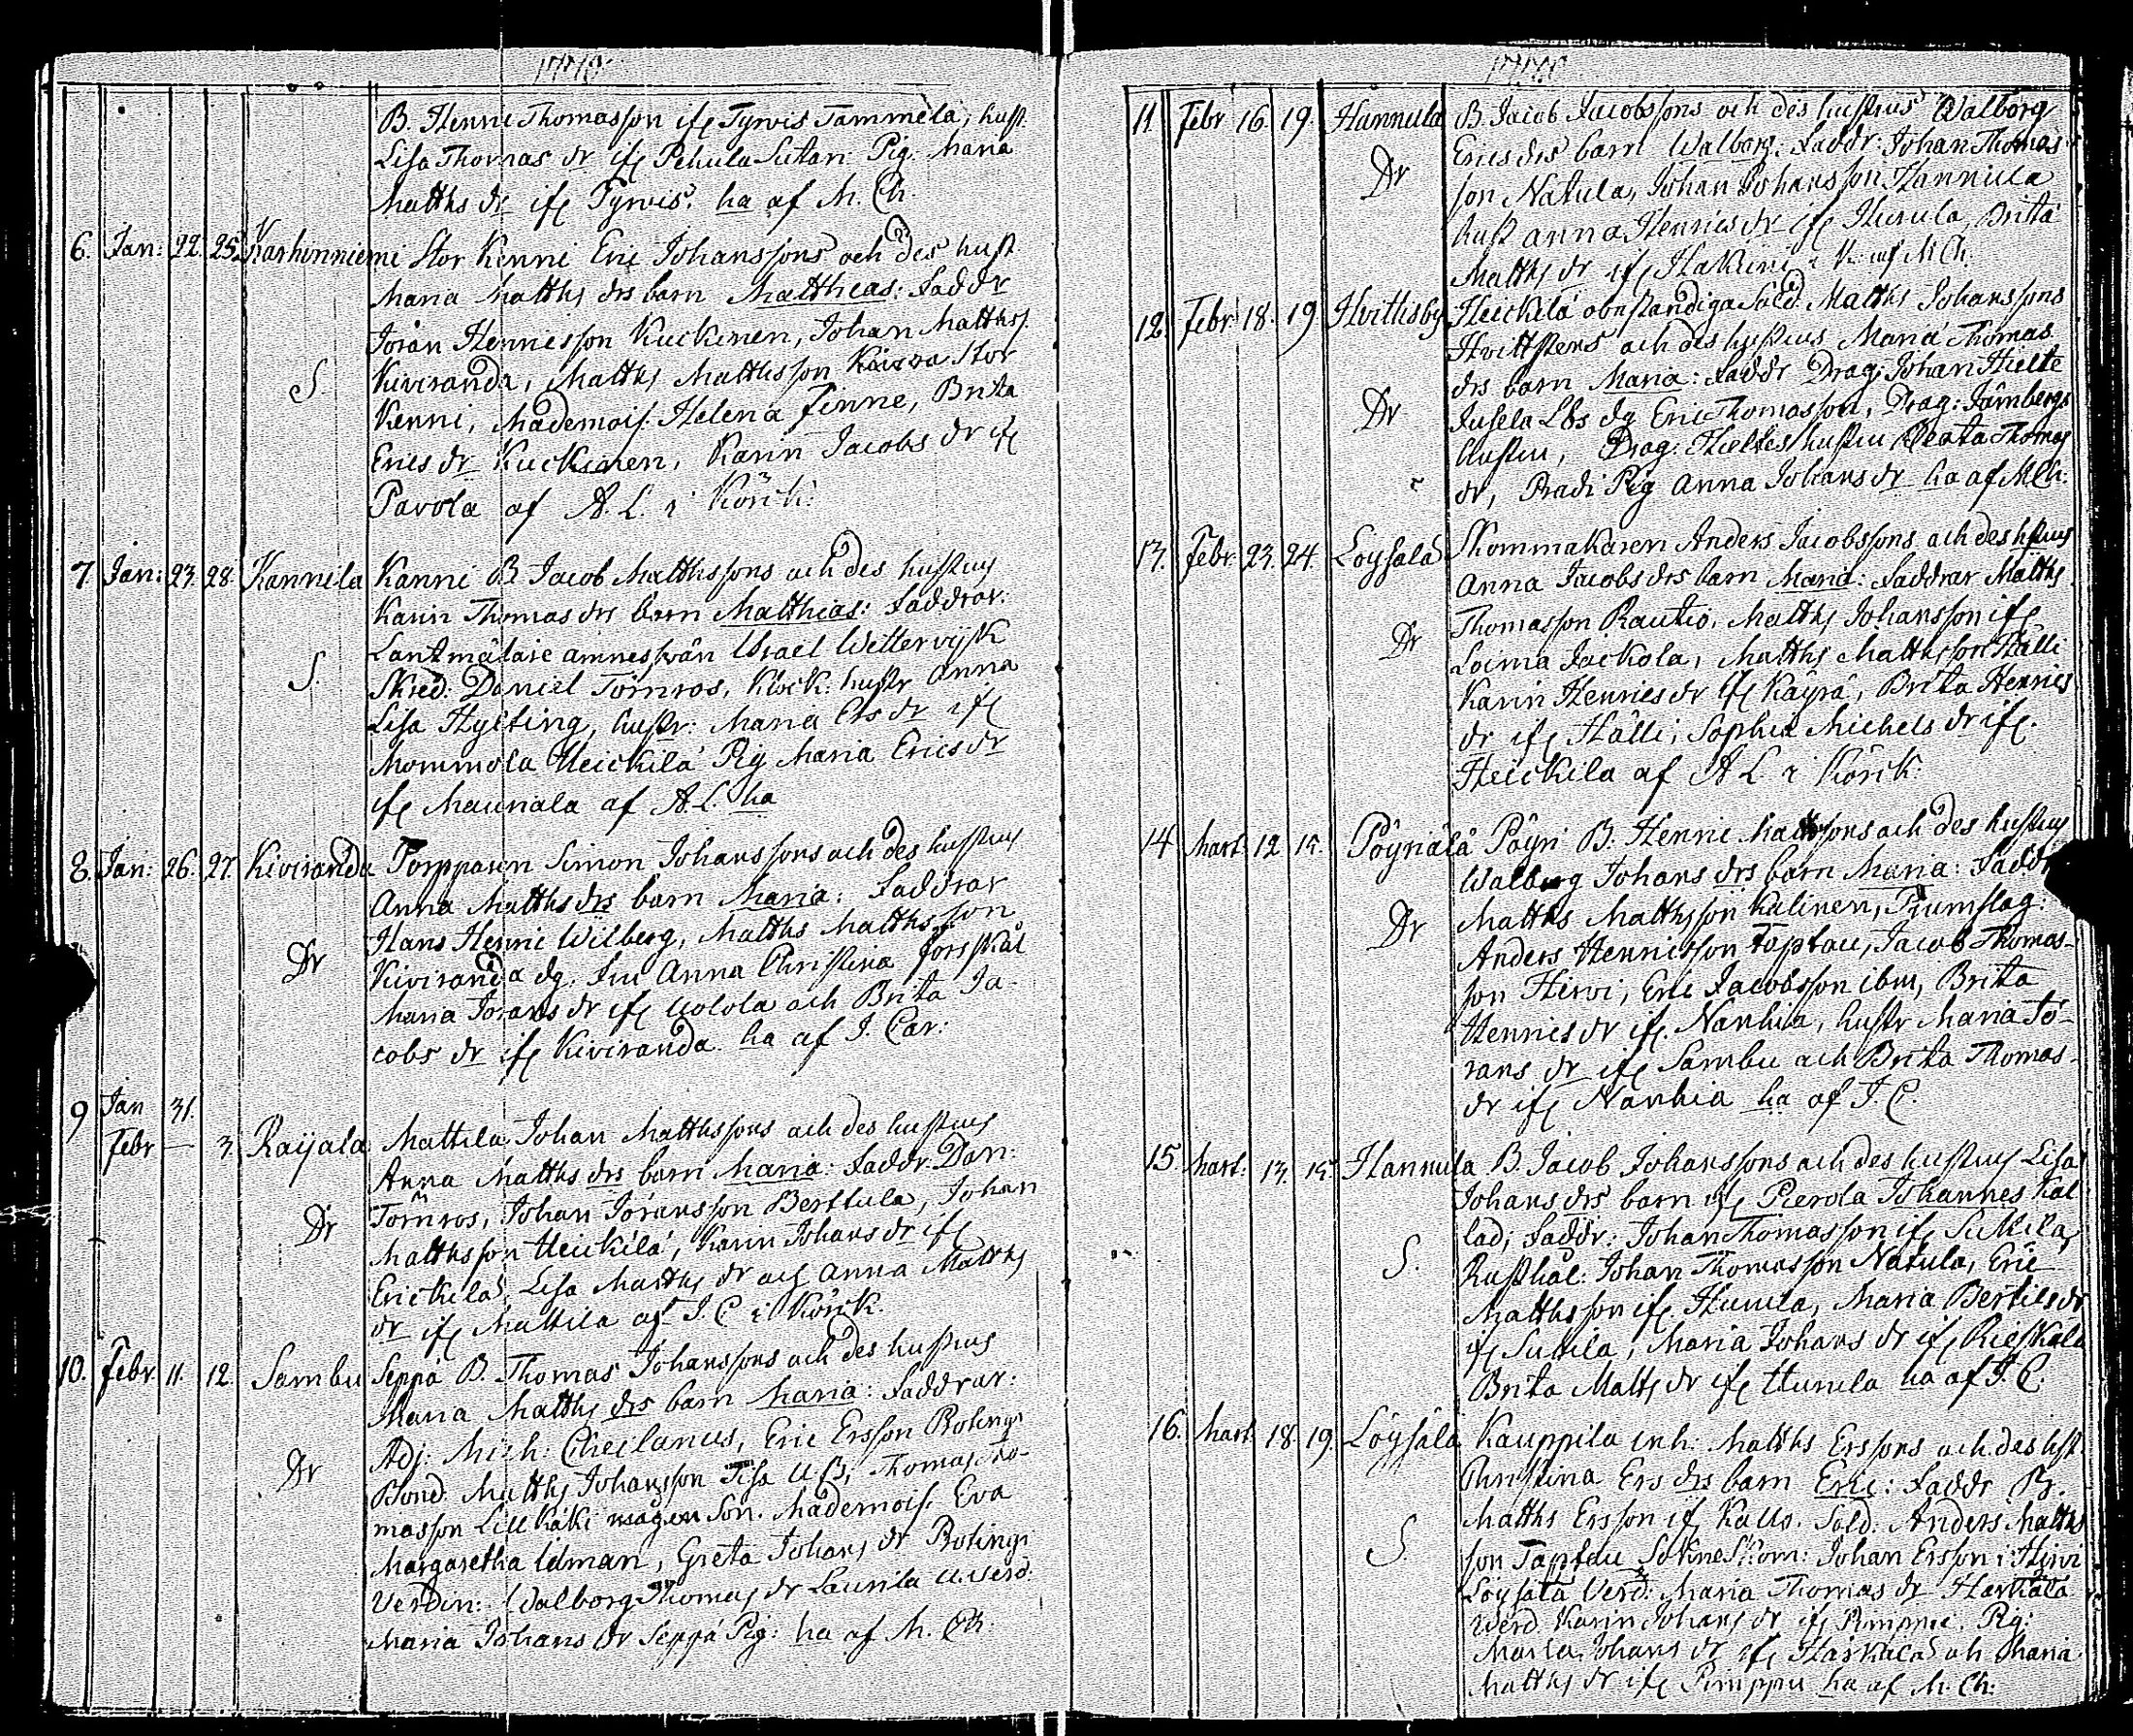 B. Henric Thomasson ifr Tyrvis Tammela, hust.
Lisa Thomas dr ifr Pehula Sutari Pig. Maria
Matths dr ifr Tyrvis. ha af M. Ch.
6. Jan: 22. 25. Karhinniemi Stor Kenni Eric Johanssons och des hust
Maria Matths drs barn Matthias: Faddr
Jöran Henricsson Kuckinen, Johan Matthss.
S. Kiviranda, Matths Matthsson Stor
Kenni, Mademois. Helena Finne, Brita
Erics dr Kuckinen, Karin Jacobs dr ifr
Pavola af A. L. i Körck:
7. Jan: 23. 28. Kannila Kanni B. Jacob Matthssons och des hustrus
Karin Thomas drs barn Matthias: Faddrar:
Lantmätare amnessvän Israel Wettervijsk
S. Skred. Daniel Törnros, Klock: hustr Anna
Lisa Hylting, hustr: Maria Ers dr ifr
Mommola Heickilä Pig Maria Erics dr
ifr Maunala af A. L. ha
8. Jan: 26. 27. Kiviranda Torpparen Simon Johanssons och des hustrus
Anna Matths drs barn Maria: Faddrar
Hans Henric Wilberg, Matths Matths son
Dr Kiviranda dg. Fru Anna Christina Forsskål
Maria Jörans dr ifr Uolola och Brita Ja-
cobs dr ifr Kiviranda ha af J. Car:
9 Jan 31.
Febr — 3. Raijala Mattila Johan Matthssons och des hustrus
Anna Matths drs barn Maria: Faddr. Dan:
Dr Törnros, Johan Jöransson Berttula, Johan
Matthsson Heickilä, Karin Johans dr ifr
Erickilä, Lisa Matths dr och Anna Matths
dr ifr Mattila af J. C i Körck.
10. Febr 11. 12. Sambu Seppä B. Thomas Johanssons och des hustrus
Maria Matths drs barn Maria: Faddrar:
Adj: Mich: Cheilanus, Eric Ersson Rotings
Dr Bond. Matths Johansson Thomas Tho-
masson Lill Käki mågen Son. Mademois. Eva
Margaretha Idman, Greta Johans dr Rotings
Verdin: Walborg Thomas dr Laurila
Maria Johans dr Seppä Pig: ha af M. Ch.
11. Febr 16 19. Hannula B. Jacob Jacobssons och des hustrus Walborg
Erics drs barn Walborg. Faddr: Johan Thomas-
Dr son Natula, Johan Johansson Hannula
hust Anna Henrics dr ifr Hurula, Brita
Matths dr ifr Hakuni af M Ch.
12. Febr 18. 19 Hvittisby Heickilä obeständiga Sold. Matths Johanssons
Hvittstens och des hustrus Maria Thomas
drs barn Maria: Faddr Drag: Johan Hielte
Dr Jusela Lbs dg Eric Thomasson, Drag: Jämbergs
hustru, Drag. Hieltes hustru Beata Thomas
dr, Pradi Pig Anna Johans dr ha af M Ch:
13. Febr. 23. 24. Loysälä Skommakaren Anders Jacobssons och des hstrus
Anna Jacobs drs barn Maria: Faddrar Matths
Dr Thomasson Rautio, Matths Johansson ifr
Loima Jackola, Matths Matthsson Hälli
Karin Henrics dr ifr Käyrä, Brita Henrics
dr ifr Hälli, Sophia Michels dr ifr.
Heickilä af A L i Körck.
14 Mart. 12 15. Pöyriälä Pöyri B. Henric Mattssons och des hustrus
Walborg Johans drs barn Maria: Faddr
Dr Matths Matthsson Kulinen, Trumslag:
Anders Henricsson Taptau, Jacob Thomas-
son Hirvi, Eric Jacobsson ibm, Brita
Henrics dr ifr. Nanhia, hustr Maria Jö-
rans dr ifr Sambu och Brita Thomas-
dr ifr Nanhia ha af J. C.
15. Mart: 13. 15. Hannula B. Jacob Johanssons och des hustrus Lisa
Johans drs barn ifr Pierola Johannes Kal
lad, Faddr: Johan Thomasson ifr Suttila,
S. Rusthål. Johan Thomasson Natula, Eric
Matthsson ifr Hurula, Maria Bertils dr
ifr Suttila, Maria Johans dr ifr Rieskala
Brita Matts dr ifr Hurula ha af J. C.
16. Mart. 18. 19. Löysälä Kauppila inh: Matths Erssons och des hst.
Christina Ers drs barn Eric: Faddr B.
Matths Ersson ifr Kallo. Sold: Anders Matths
S. son Taptau Sockne Skom: Johan Ersson i Hirvi
Löysälä Verd: Maria Thomas dr Hartiala
Werd Karin Johans dr ifr Pimppu. Pig:
Maria Johans dr ifr Haskala och Maria
Matths dr ifr Pimppu ha af M. Ch: